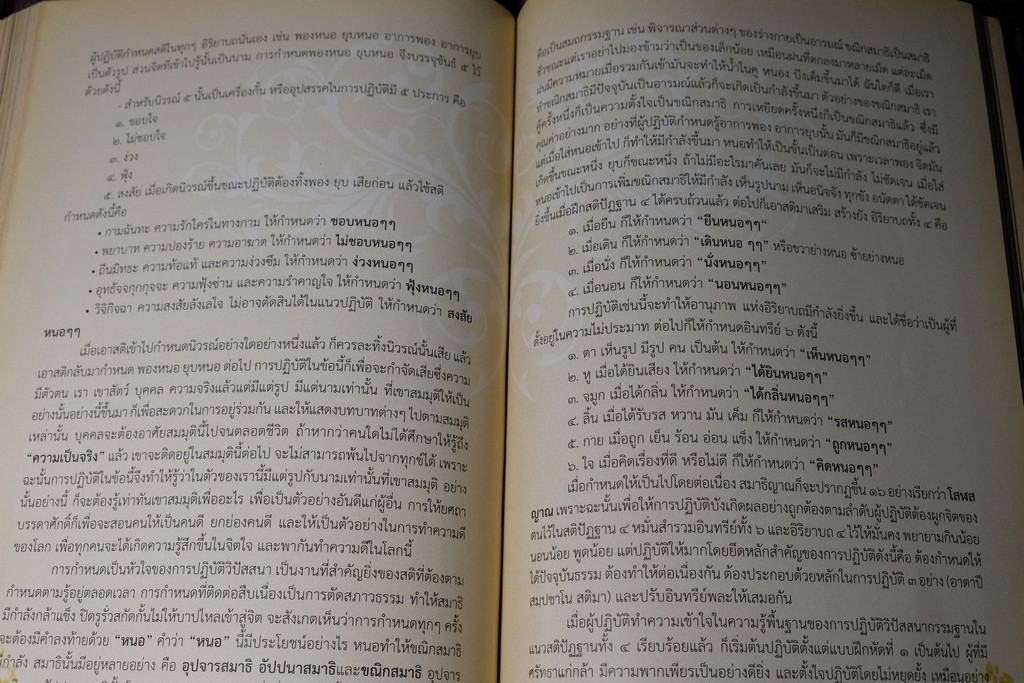 ผู้ปฏิบัติกำหนดสติในทุกๆ อิริยาบถนั่นเอง เช่น พองหนอ ยุบหนอ อาการพอง อาการยุบ
เป็นตัวรูป ส่วนจิตที่เข้าไปรู้นั้นเป็นนาม การกำหนดพองหนอ ยุบหนอ จึงบรรจุขันธ์ ๕ ไว้
ด้วยดังนี้
- สำหรับนิวรณ์ ๕ นั้นเป็นเครื่องกั้น หรืออุปสรรคในการปฏิบัติมี ๕ ประการ คือ
๑. ชอบใจ
๒. ไม่ชอบใจ
๓. ง่วง
๔. ฟุ้ง
๕. สงสัย เมื่อเกิดนิวรณ์ขึ้นขณะปฏิบัติต้องทิ้งพอง ยุบ เสียก่อน แล้วใช้สติ
กำหนดดังนี้คือ
• กามฉันทะ ความรักใคร่ในทางกาม ให้กำหนดว่า ชอบหนอๆๆ
• พยาบาท ความปองร้าย ความอาฆาต ให้กำหนดว่า ไม่ชอบหนอๆๆ
• ถีนมิทธะ ความท้อแท้ และความง่วงซึม ให้กำหนดว่า ง่วงหนอๆๆ
• อุทธัจจกุกกุจจะ ความฟุ้งซ่าน และความรำคาญใจ ให้กำหนดว่า ฟุ้งหนอๆๆ
• วิจิกิจฉา ความสงสัยลังเลใจ ไม่อาจตัดสินได้ในแนวปฏิบัติ ให้กำหนดว่า สงสัย
หนอๆๆ
เมื่อเอาสติเข้าไปกำหนดนิวรณ์อย่างใดอย่างหนึ่งแล้ว ก็ควรละทิ้งนิวรณ์นั้นเสีย แล้ว
เอาสติกลับมากำหนด พองหนอ ยุบหนอ ต่อไป การปฏิบัติในข้อนี้ก็เพื่อจะกำจัดเสียซึ่งความ
มีตัวตน เรา เขาสัตว์ บุคคล ความจริงแล้วแต่มีแต่รูป มีแต่นามเท่านั้น ที่เขาสมมุติให้เป็น
อย่างนั้นอย่างนี้ขึ้นมา ก็เพื่อสะดวกในการอยู่ร่วมกัน และให้แสดงบทบาทต่างๆ ไปตามสมมุติ
เหล่านั้น บุคคลจะต้องอาศัยสมมุตินี้ไปจนตลอดชีวิต ถ้าหากว่าคนใดไม่ได้ศึกษาให้รู้ถึง
“ความเป็นจริง” แล้ว เขาจะติดอยู่ในสมมุตินี้ต่อไป จะไม่สามารถพ้นไปจากทุกข์ได้ เพราะ
ฉะนั้นการปฏิบัติในข้อนี้จึงทำให้รู้ว่าในตัวของเรานี้มีแต่รูปกับนามเท่านั้นที่เขาสมมุติ อย่าง
นั้นอย่างนี้ ก็จะต้องรู้เท่าทันเขาสมมุติเพื่ออะไร เพื่อเป็นตัวอย่างอันดีแก่ผู้อื่น การให้ยศถา
บรรดาศักดิ์ก็เพื่อจะสอนคนให้เป็นคนดี ยกย่องคนดี และให้เป็นตัวอย่างในการทำความดี
ของโลก เพื่อทุกคนจะได้เกิดความรู้สึกขึ้นในจิตใจ และพากันทำความดีในโลกนี้
การกำหนดเป็นหัวใจของการปฏิบัติวิปัสสนา เป็นงานที่สำคัญยิ่งของสติที่ต้องตาม
กำหนดตามรู้อยู่ตลอดเวลา การกำหนดที่ติดต่อสืบเนื่องเป็นการตัดสภาวธรรม ทำให้สมาธิ
มีกำลังกล้าแข็ง ปิดรูรั่วสกัดกั้นไม่ให้บาปไหลเข้าสู่จิต จะสังเกตเห็นว่าการกำหนดทุกๆ ครั้ง
จะต้องมีคำลงท้ายด้วย “หนอ” คำว่า “หนอ” นี้มีประโยชน์อย่างไร หนอทำให้ขณิกสมาธิ
มีกำลัง สมาธินั้นมีอยู่หลายอย่าง คือ อุปจารสมาธิ อัปปนาสมาธิและขณิกสมาธิ อุปจาร
คือเป็นสมถกรรมฐาน เช่น พิจารณาส่วนต่างๆ ของร่างกายเป็นอารมณ์ ขณิกสมาธิเป็นสมาธิ
ชั่วขณะแต่เราอย่าไปมองข้ามว่าเป็นของเล็กน้อย เหมือนฝนที่ตกลงมาหลายเม็ด แต่ละเม็ด
ฝนมีความหมายเมื่อรวมกันเข้ามันจะทำให้น้ำในคู หนอง บึงเต็มขึ้นมาได้ ฉันใดก็ดี เมื่อเรา
ทำขณิกสมาธิมีปัจจุบันเป็นอารมณ์แล้วก็จะเกิดเป็นกำลังขึ้นมา ตัวอย่างของขณิกสมาธิ เรา
คู้ครั้งหนึ่งก็เป็นความตั้งใจเป็นขณิกสมาธิ การเหยียดครั้งหนึ่งก็เป็นขณิกสมาธิแล้ว ซึ่งมี
คุณค่าอย่างมาก อย่างที่ผู้ปฏิบัติกำหนดรู้อาการพอง อาการยุบนั้น มันก็มีขณิกสมาธิอยู่แล้ว
แต่เมื่อใส่หนอเข้าไป ก็ทำให้มีกำลังขึ้นมา หนอทำให้เป็นขั้นเป็นตอน เพราะเวลาพอง จิตมัน
เกิดขึ้นขณะหนึ่ง ยุบก็ขณะหนึ่ง ถ้าไม่มีอะไรมาคั่นเลย มันก็จะไม่มีกำลัง ไม่ชัดเจน เมื่อใส่
หนอเข้าไปเป็นการเพิ่มขณิกสมาธิให้มีกำลัง เห็นรูปนาม เห็นอนิจจัง ทุกขัง อนัตตา ได้ชัดเจน
ยิ่งขึ้นเมื่อฝึกสติปัฏฐาน ๔ ได้ครบถ้วนแล้ว ต่อไปก็เอาสติมาเสริม สร้างยัง อิริยาบถทั้ง ๔ คือ
๑. เมื่อยืน ก็ให้กำหนดว่า “ยืนหนอๆๆ“
๒. เมื่อเดิน ก็ให้กำหนดว่า “เดินหนอ ๆๆ” หรือขวาย่างหนอ ซ้ายย่างหนอ
๓. เมื่อนั่ง ก็ให้กำหนดว่า “นั่งหนอๆๆ”
๔. เมื่อนอน ก็ให้กำหนดว่า “นอนหนอๆๆ”
การปฏิบัติเช่นนี้จะทำให้อานุภาพ แห่งอิริยาบถมีกำลังยิ่งขึ้น และได้ชื่อว่าเป็นผู้ที่
ตั้งอยู่ในความไม่ประมาท ต่อไปก็ให้กำหนดอินทรีย์ ๖ ดังนี้
๑. ตา เห็นรูป มีรูป คน เป็นต้น ให้กำหนดว่า “เห็นหนอๆๆ”
๒. หู เมื่อได้ยินเสียง ให้กำหนดว่า “ได้ยินหนอๆๆ”
๓. จมูก เมื่อได้กลิ่น ให้กำหนดว่า “ได้กลิ่นหนอๆๆ”
๔. ลิ้น เมื่อได้รับรส หวาน มัน เค็ม ก็ให้กำหนดว่า “รสหนอๆๆ”
๕. กาย เมื่อถูก เย็น ร้อน อ่อน แข็ง ให้กำหนดว่า “ถูกหนอๆๆ”
๖. ใจ เมื่อคิดเรื่องที่ดี หรือไม่ดี ก็ให้กำหนดว่า “คิดหนอๆๆ”
เมื่อกำหนดให้เป็นไปโดยต่อเนื่อง สมาธิญาณก็จะปรากฏขึ้น ๑๖ อย่างเรียกว่า โสฬส
ญาณ เพราะฉะนั้นเพื่อให้การปฏิบัติบังเกิดผลอย่างถูกต้องตามลำดับผู้ปฏิบัติต้องผูกจิตของ
ตนไว้ในสติปัฏฐาน ๔ หมั่นสำรวมอินทรีย์ทั้ง ๖ และอิริยาบถ ๔ ไว้ให้มั่นคง พยายามกินน้อย
นอนน้อย พูดน้อย แต่ปฏิบัติให้มากโดยยึดหลักสำคัญของการปฏิบัติดังนี้คือ ต้องกำหนดให้
ได้ปัจจุบันธรรม ต้องทำให้ต่อเนื่องกัน ต้องประกอบด้วยหลักในการปฏิบัติ ๓ อย่าง (อาตาปี
สมฺปชาโน สติมา) และปรับอินทรีย์พละให้เสมอกัน
เมื่อผู้ปฏิบัติทำความเข้าใจในความรู้พื้นฐานของการปฏิบัติวิปัสสนากรรมฐานใน
แนวสติปัฏฐานทั้ง ๔ เรียบร้อยแล้ว ก็เริ่มต้นปฏิบัติตั้งแต่แบบฝึกหัดที่ ๑ เป็นต้นไป ผู้ที่มี
ศรัทธาแก่กล้า มีความพากเพียรเป็นอย่างดียิ่ง และตั้งใจปฏิบัติโดยไม่หยุดยั้ง เหมือนอย่าง